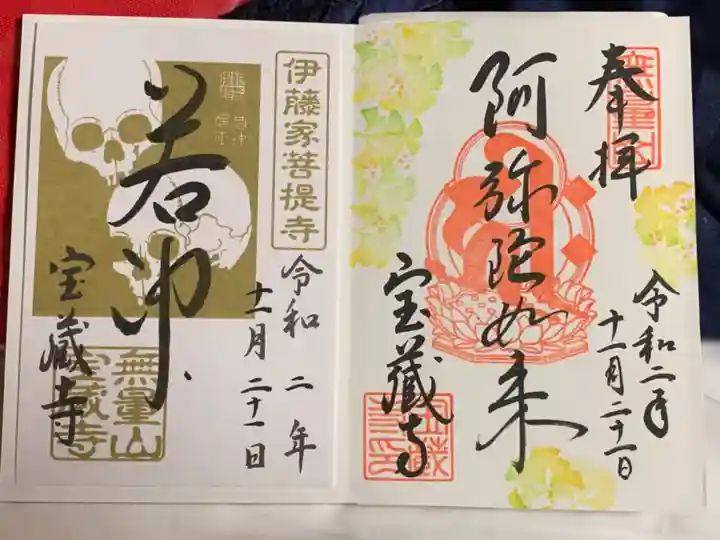 奉拝
阿弥陀如来
宝蔵寺
令和二年
十一月二十一日
無量山
伊藤家菩提寺
若冲
令和二年
十一月二十一日
宝蔵寺
無量山
宝蔵寺